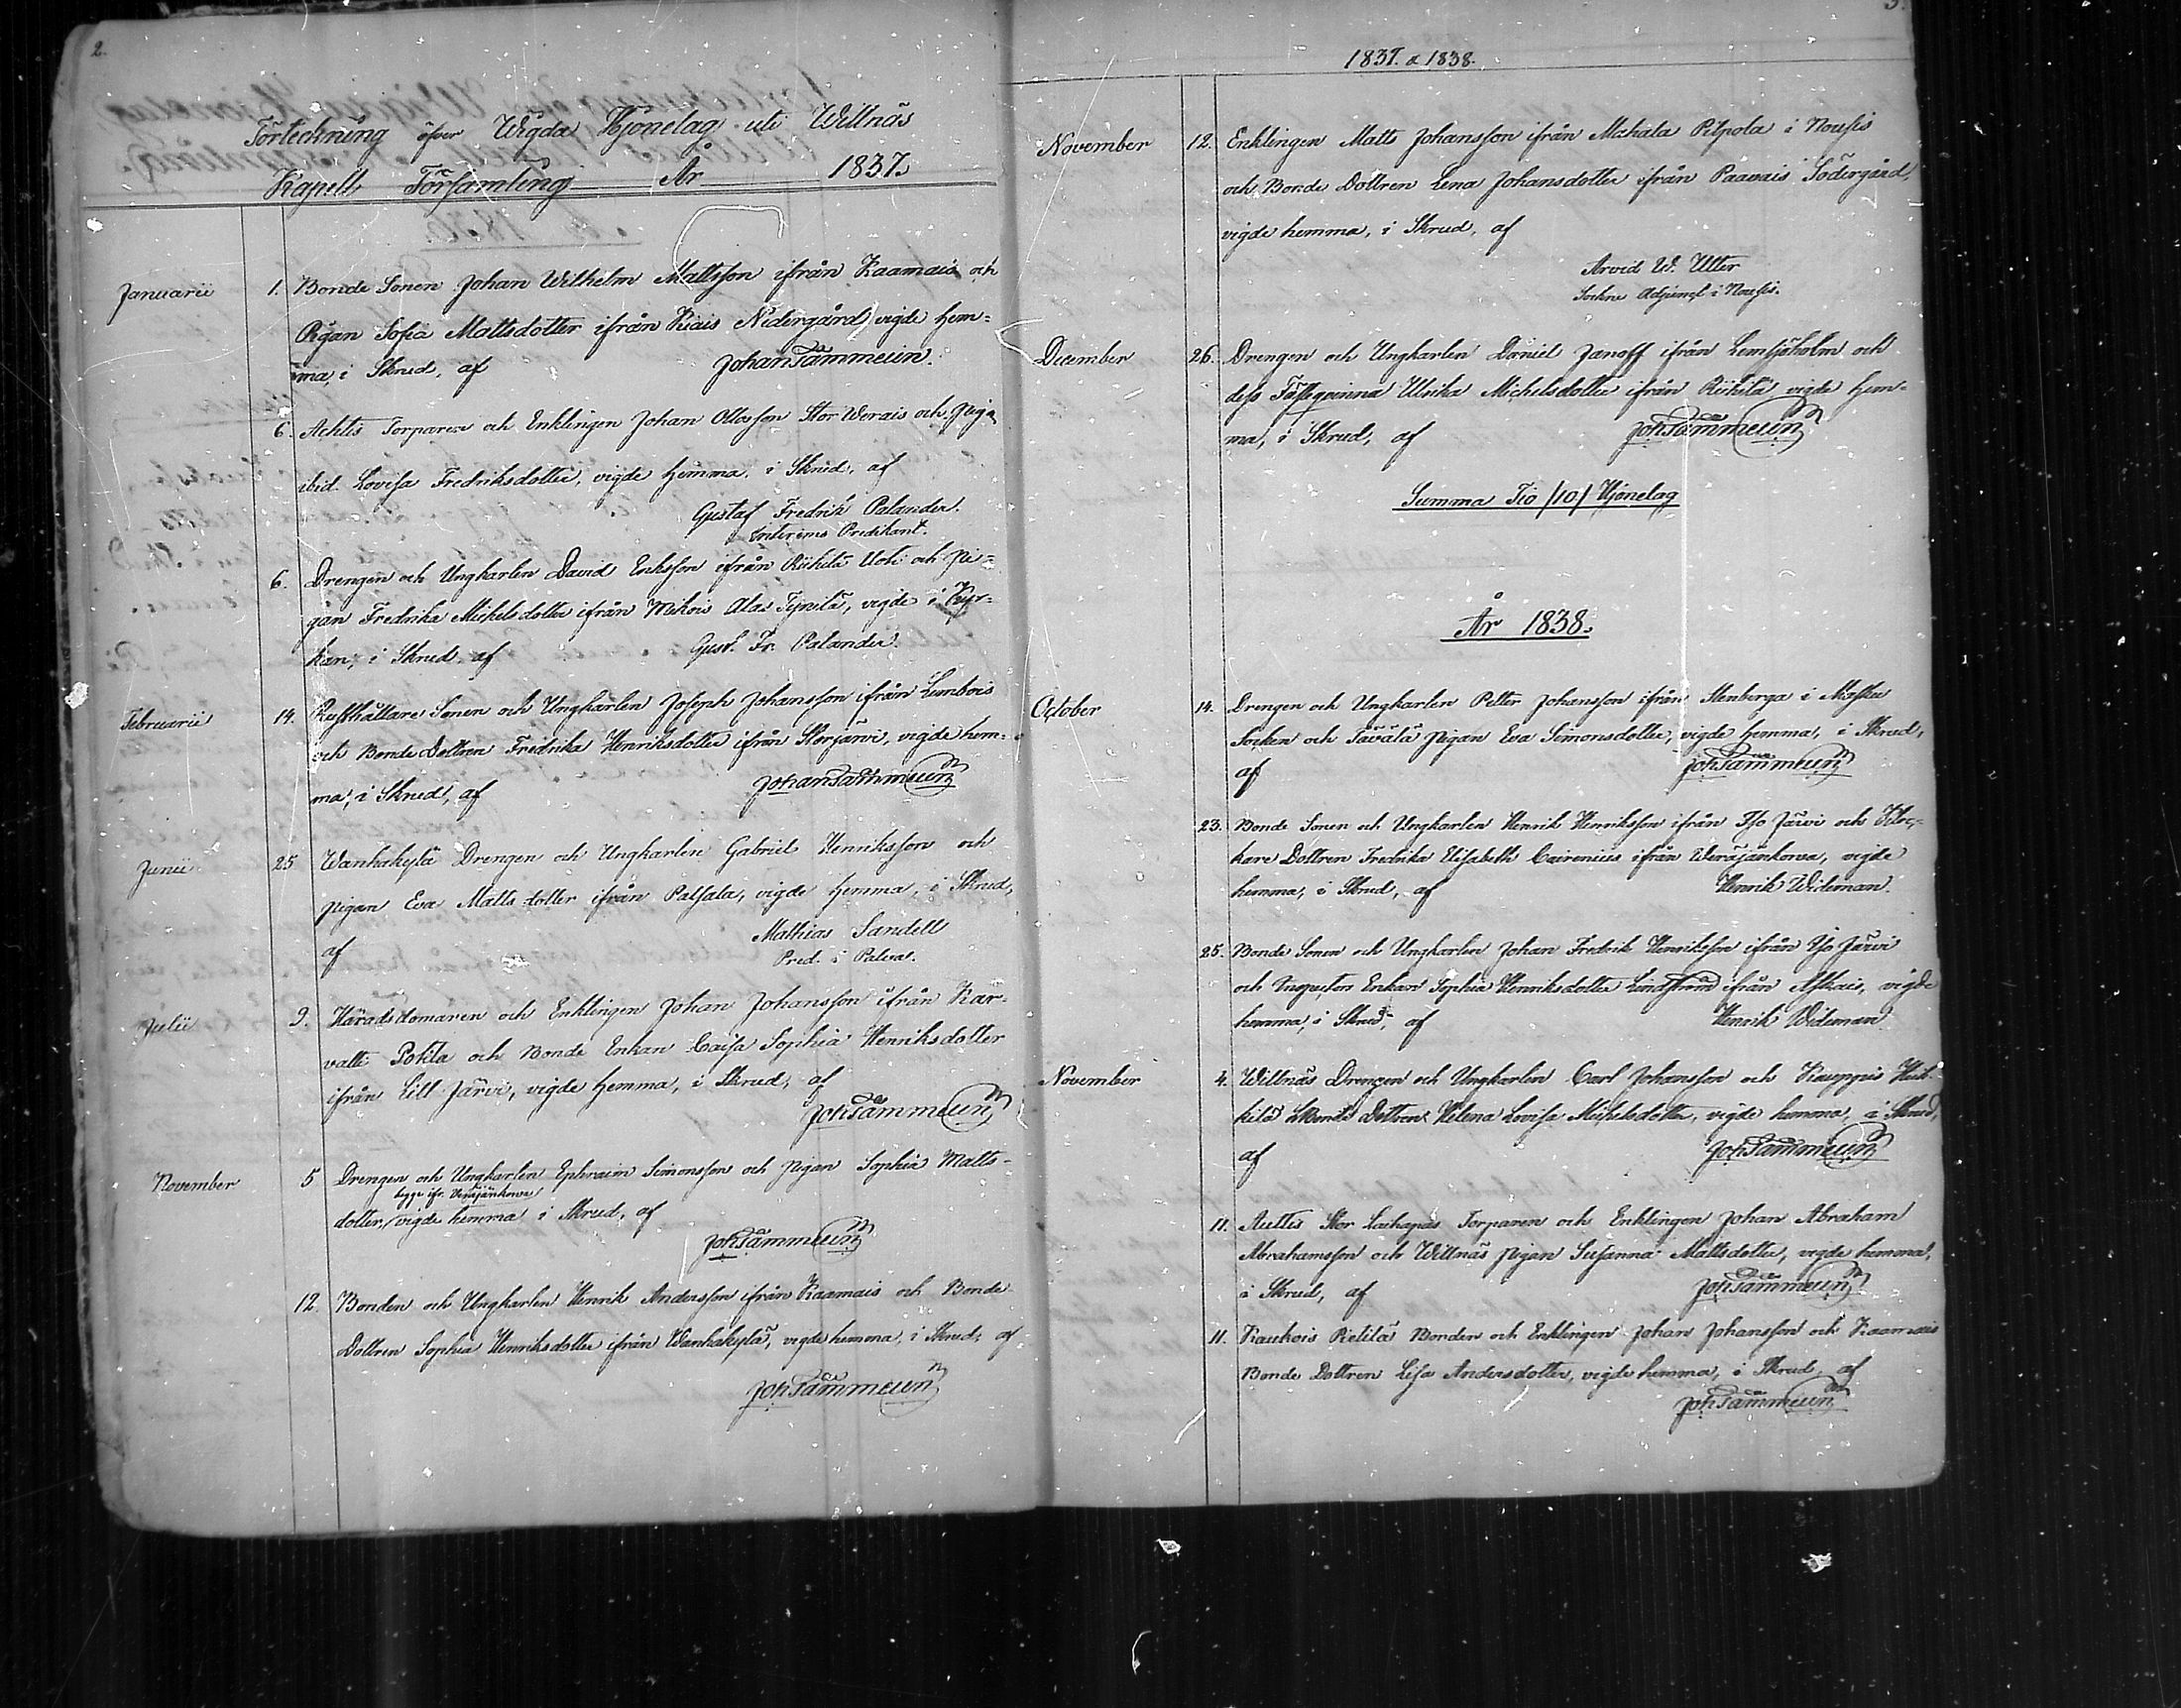 2.
Förteckning öfver Wigda Hjonelag uti Willnäs
Kapell Församling År 1837.
Januarii 1. Bonde Sonen Johan Wilhelm Mattsson ifrån Kaamais och
Pigan Sofia Mattsdotter ifrån Kiais Nedergård, vigde hem=
ma, i Skrud, af Johan Tammelin.
6. Achtis Torparen och Enklingen Johan Olofsson Stor Werais och Piga
ibid. Lovisa Fredriksdotter, vigde hemma, i Skrud, af
Gustaf Fredrik Palander.
Interims Predikant.
6. Drengen och Ungkarlen David Eriksson ifrån Riihitä Uoti och Pi=
gan Fredrika Michelsdotter ifrån Mikois Alas Tynilä, vigde i Kyr=
kan, i Skrud af Gust. Fr. Palander.
Februarii 14. Rusthållare Sonen och Ungkarlen Joseph Johansson ifrån Lembois
och Bonde Dottren Fredrika Henriksdotter ifrån Storjärvi, vigde hem=
ma, i Skrud, af Johan Tammelin
Junii 25 Wanhakylä Drengen och Ungkarlen Gabriel Henriksson och
Pigan Eva Matts dotter ifrån Palsala, vigde hemma, i Skrud,
af Mathias Sandell
Pred. i Paleva.
Julii 9. Häradsdomaren och Enklingen Johan Johansson ifrån Kar=
vatti Pohta och Bonde Enkan Caisa Sophia Henriksdotter
ifrån Lill Järvi, vigde hemma, i Skrud, af
Joh Tammelin
November 5 Drengen och Ungkarlen Ephraim Simonsson och Pigan Sophia Matts-
begge ifr. Weräjänkorva
dotter, vigde hemma i Skrud, af
Joh Tammelin
12. Bonden och Ungkarlen Henrik Andersson ifrån Kaamais och Bonde
Dottren Sophia Henriksdotter ifrån Wanhakylä, vigde hemma, i Skrud, af
Joh Tammelin
3.
1837. a 1838.
November 12. Enklingen Matts Johansson ifrån Mahala Pilpola i Nousis
och Bonde Dottren Lena Johansdotter ifrån Paavais Södergård,
vigde hemma, i Skrud, af
Arvid W. Utter
Sockne Adjunct i Nousis.
December 26. Drengen och Ungkarlen Daniel Janoff ifrån Lemsjöholm och
dess Fästeqvinna Ulrika Michelsdotter ifrån Riihitä vigde hem=
ma, i Skrud, af Joh Tammelin
Summa Tio /10/ Hjonelag
År 1838.
October 14. Drengen och Ungkarlen Petter Johansson ifrån Stenberga i Masku
Socken och Tavälä Pigan Eva Simonsdotter, vigde hemma, i Skrud,
af Joh Tammelin
23. Bonde Sonen och Ungkarlen Henrik Henriksson ifrån Iso Järvi och Kloc-
kare Dottren Fredrika Elisabeth Cairenius ifrån Weräjänkorva, vigde
hemma, i Skrud, af Henrik Wideman.
25. Bonde Sonen och Ungkarlen Johan Fredrik Henriksson ifrån Iso Järvi
och Inspectors Enkan Sophia Henriksdotter Lindström ifrån Askais, vigde
hemma, i Skrud, af Henrik Wideman
November 4. Willnäs Drengen och Ungkarlen Carl Johansson och Kauppis Huk-
kila Bonde Dottren Helena Lovisa Michelsdotter, vigde hemma, i Skrud,
af Joh Tammelin
11. Auttis Stor Torparen och Enklingen Johan Abraham
Abrahamsson och Willnäs Pigan Susanna Mattsdotter, vigde hemma,
i Skrud, af Joh Tammelin
11. Kaukois Rietilä Bonden och Enklingen Johan Johansson och Kaamais
Bonde Dottren Lisa Andersdotter, vigde hemma, i Skrud af
Joh Tammelin